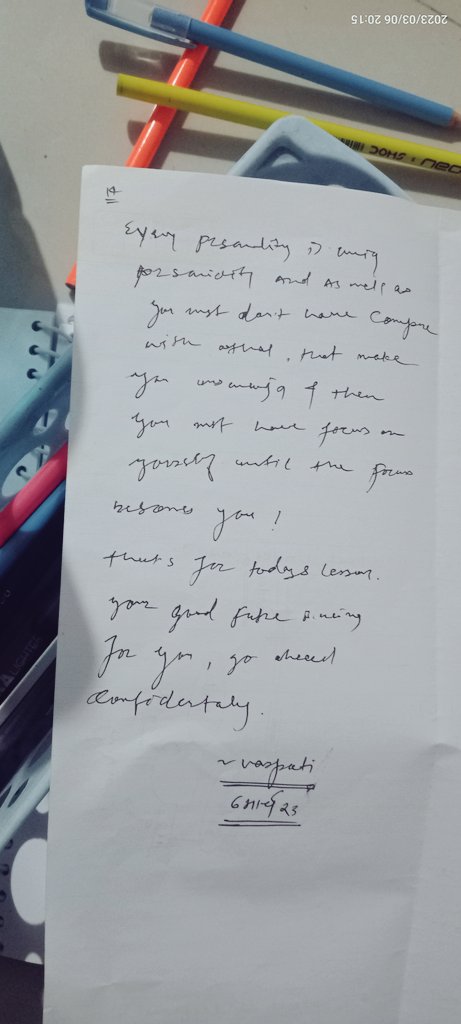 2023/03/06 20:15
Every personality is
personality and as well as
you must don't have compare
with other, that make
you then
you must have focus on
yourself until the focus
becomes you!
that's for todays lesson.
your good future
for you, go ahead
confidentaly.
~ vaspati
6 मार्च 23